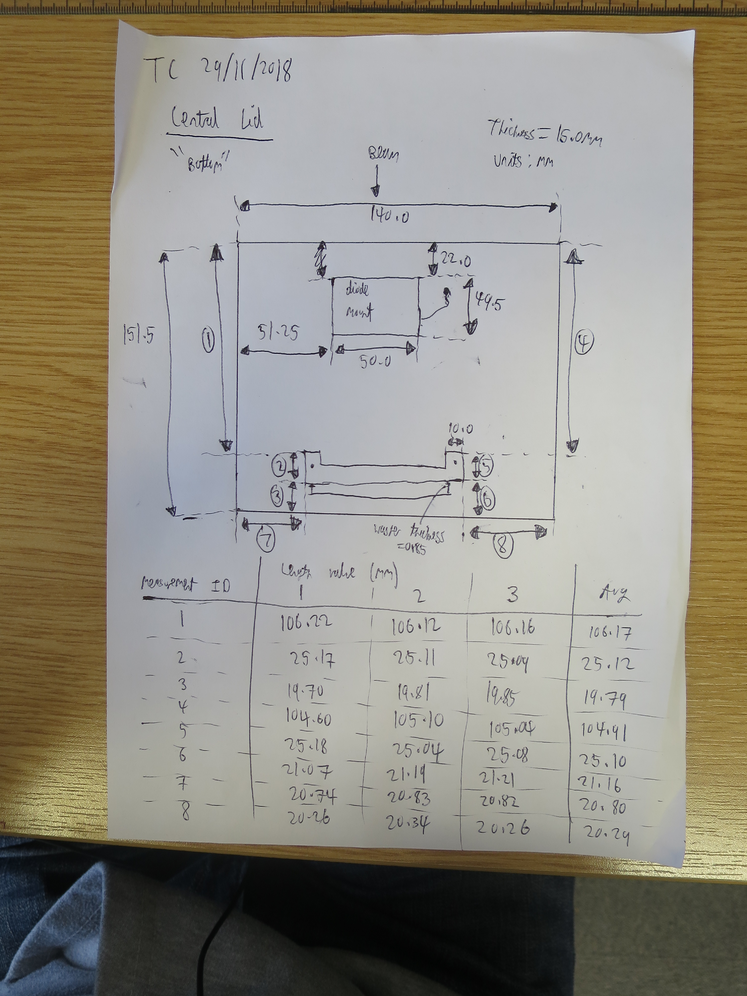 TC 29/11/2018
Central Lid
"Bottom"
Thickness = 15.0mm
Units: mm
Beam
140.0
22.0
diode
mount
49.5
151.5
1
51.25
50.0
4
10.0
2
5
3
6
washer thickness
=0.85
7
8
Measurement ID Length value (mm)
1 2 3 Avg
1 106.22 106.12 106.16 106.17
2 25.17 25.11 25.09 25.12
3 19.70 19.81 19.85 19.79
4 104.60 105.10 105.04 104.91
5 25.18 25.04 25.08 25.10
6 21.07 21.19 21.21 21.16
7 20.74 20.83 20.82 20.80
8 20.26 20.34 20.26 20.29